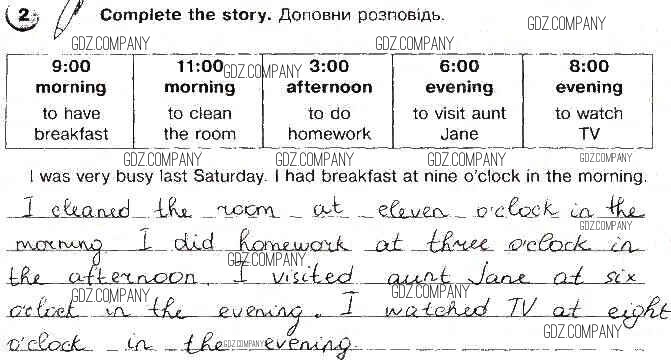 2 Complete the story. Доповни розповідь.
GDZ.COMPANY
GDZ.COMPANY GDZ.COMPANY
9:00 11:00 3:00 6:00 8:00
GDZ.COMPANY
morning morning afternoon evening evening
to have to clean to do to visit aunt to watch
breakfast the room homework Jane TV
GDZ.COMPANY GDZ.COMPANY GDZ.COMPANY GDZ.COMPANY
I was very busy last Saturday. I had breakfast at nine o'clock in the morning.
I cleaned the room at eleven o'clock in the
GDZ.COMPANY
morning. I did homework at three o'clock in
GDZ.COMPANY
the afternoon. I visited aunt Jane at six
GDZ.COMPANY GDZ.COMPANY
o'clock in the evening. I watched TV at eight
GDZ.COMPANY
o'clock in the evening.
GDZ.COMPANY